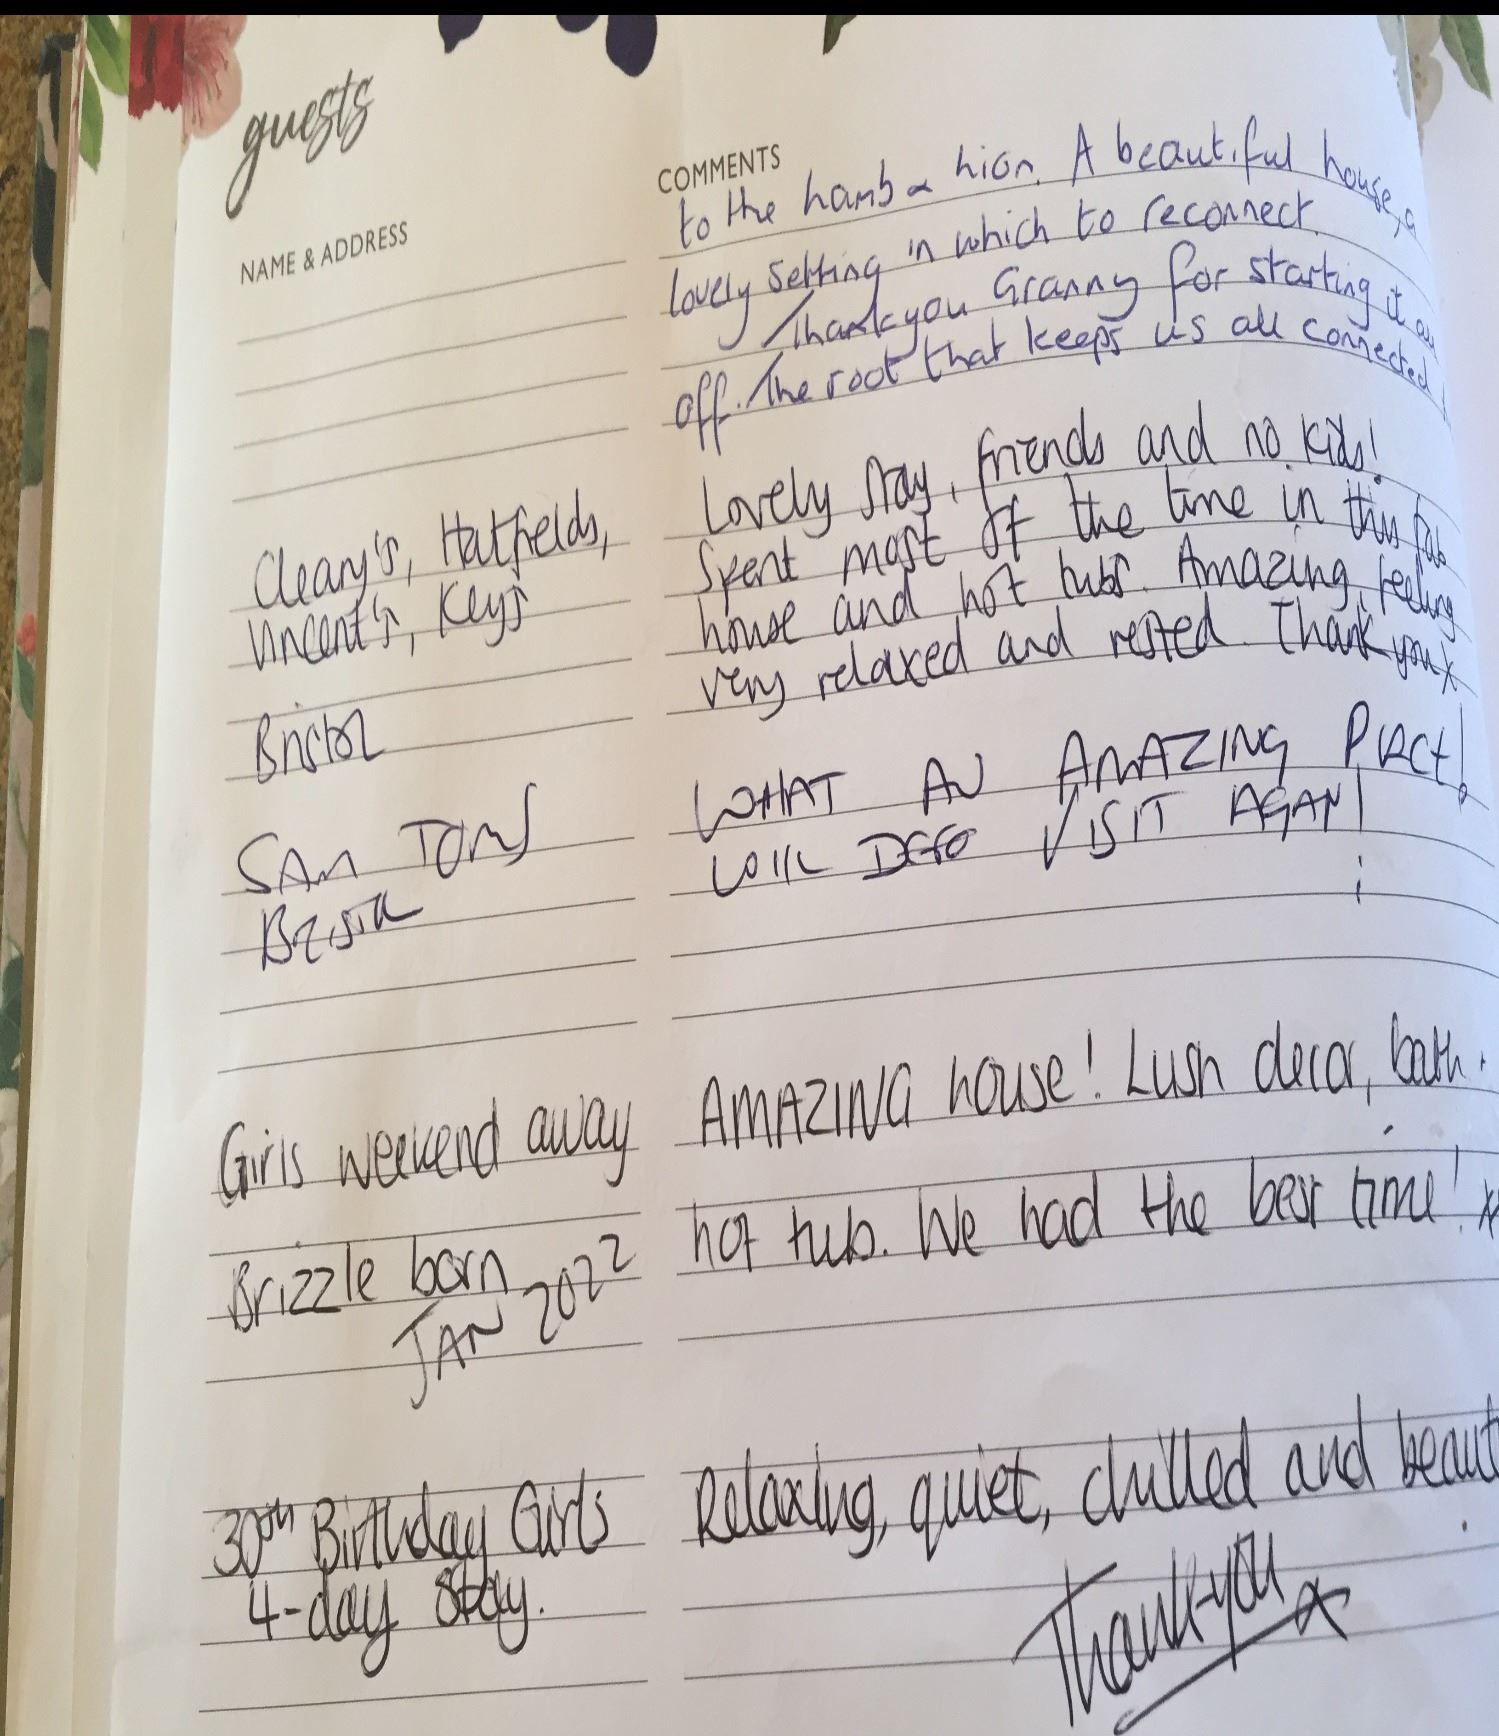 guests
NAME & ADDRESS
COMMENTS
to the hamb & hion. A beautiful house, a
lovely setting in which to reconnect.
Thankyou Granny for starting it all
off. The root that keeps us all connected!
Cleary's, Hatfields,
Vincent's, Keys
Bristol
Lovely stay, friends and no kids!
Spent most of the time in this fab
house and hot tubs. Amazing, feeling
very relaxed and rested. Thank you x
SAM TOMS
BRISTOL
WHAT AN AMAZING PLACE!
WILL DEFO VISIT AGAIN!
Girls weekend away
Brizzle born
JAN 2022
AMAZING house! Lush decor, bath.
hot tub. We had the best time! x
30th Birthday Girls
4-day stay.
Relaxing, quiet, chilled and beaut
Thank-you x